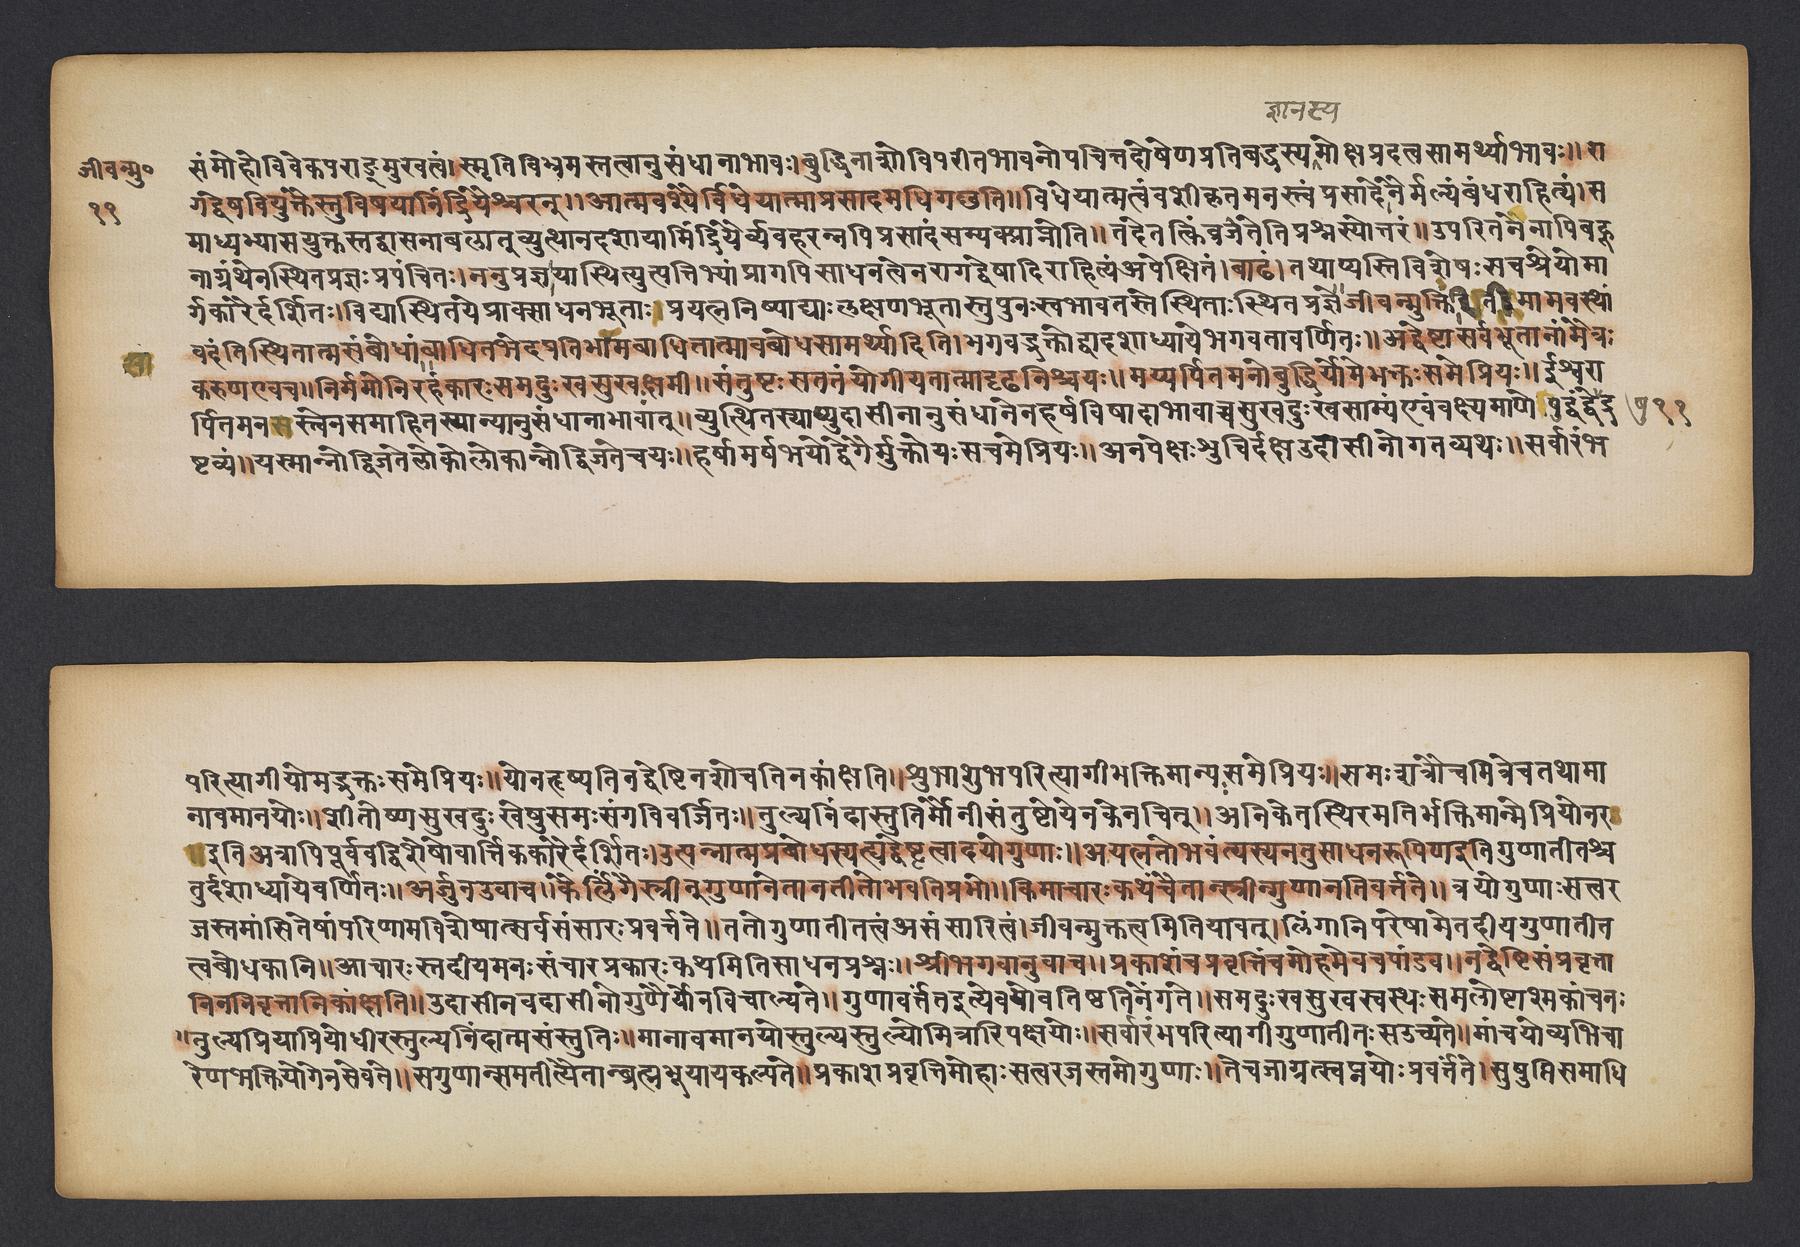 ज्ञानस्य
जीवन्मु०
११
संमोहोविवेकपराङ्मुखत्वं। स्मृतिविभ्रमस्तत्वानुसंधानाभावः। बुद्धिनाशोविपरीतभावनोपचित्तदोषेणप्रतिबद्धस्यमोक्षप्रदत्वसामर्थ्याभावः॥ रा
गद्वेषवियुक्तैस्तुविषयानिंद्रियैश्चरन्॥ आत्मवश्यैर्विधेयात्माप्रसादमधिगछति॥ विधेयात्मत्वंवशीकृतमनस्त्वं प्रसादंनैर्मल्यंबंधराहित्यं। स
माध्यभ्यासयुक्तस्तद्वासनाबलात् व्युत्थानदशायामिंद्रियैर्व्यवहरन्नपिप्रसादंसम्यक्प्राप्नोति॥ तदेतत्किंव्रजेतेतिप्रश्नस्योत्तरं॥ उपरितनेनापिबहू
नाग्रंथेनस्थितप्रज्ञः प्रपंचितः। ननुप्रज्ञायास्थित्युत्पत्तिभ्यां प्रागपिसाधनत्वेनरागद्वेषादिराहित्यं अपेक्षितं। बाढं। तथाप्यस्तिविशेषः सचश्रेयोमा
र्गकारैर्दर्शितः। विद्यास्थितयेप्राक्साधनभूताः प्रयत्ननिष्पाद्याः लक्षणभूतास्तुपुनः स्वभावतस्तेस्थिताः स्थितप्रज्ञे जीवन्मुक्तिरितीमामवस्थां
वदंतिस्थितात्मसंबोधांबाधितभेदप्रतिभामबाधितात्मावबोधसामर्थ्यादिति। भगवद्भक्तोद्वादशाध्यायेभगवतावर्णितः॥ अद्वेष्टासर्वभूतानांमैत्रः
करुणएवच॥ निर्ममोनिरहंकारः समदुःखसुखक्षमी॥ संतुष्टः सततंयोगीयतात्मादृढनिश्चयः॥ मय्यर्पितमनोबुद्धिर्योमेभक्तः समेप्रियः॥ ईश्वरा
र्पितमनस्त्वेनसमाहितस्यान्यानुसंधानाभावात्॥ व्युत्थितस्याप्युदासीनानुसंधानेनहर्षविषादाभावाच्चसुखदुःखसाम्यंएवंवक्ष्यमाणेषुद्वंद्वेद्र
११
ष्टव्यं॥ यस्मान्नोद्विजतेलोकोलोकान्नोद्विजतेचयः॥ हर्षामर्षभयोद्वेगैर्मुक्तोयः सचमेप्रियः॥ अनपेक्षः शुचिर्दक्षउदासीनोगतव्यथः॥ सर्वारंभ
परित्यागीयोमद्भक्तः समेप्रियः॥ योनहृष्यतिनद्वेष्टिनशोचतिनकांक्षति॥ शुभाशुभपरित्यागीभक्तिमान्यसमेप्रियः॥ समः शत्रौचमित्रेचतथामा
नावमानयोः॥ शीतोष्णसुखदुःखेषुसमः संगविवर्जितः॥ तुल्यनिंदास्तुतिर्मौनीसंतुष्टोयेनकेनचित्॥ अनिकेतस्थिरमतिर्भक्तिमान्मेप्रियोनरः
इतिअत्रापिपूर्ववद्विशेषोवार्त्तिककारैर्दर्शितः। उत्पन्नात्मप्रबोधस्यत्वद्वेष्टृत्वादयोगुणाः॥ अयत्नतोभवंत्यस्यनतुसाधनरूपिणइतिगुणातीतश्च
तुर्दशाध्यायेवर्णितः॥ अर्जुनउवाच॥ कैर्लिंगैस्त्रीन्गुणानेतानतीतोभवतिप्रभो॥ किमाचारः कथंचैतान्स्त्रीन्गुणानतिवर्त्तते॥ त्रयोगुणाः सत्वर
जस्तमांसितेषांपरिणामविशेषात्सर्वसंसारः प्रवर्त्तते॥ ततोगुणातीतत्वंअसंसारित्वं। जीवन्मुक्तत्वमितियावत्। लिंगानिपरेषामेतदीयगुणातीत
त्वबोधकानि॥ आचारः स्तदीयमनः संचारप्रकारः कथमितिसाधनप्रश्नः॥ श्रीभगवानुवाच॥ प्रकाशंचप्रवृत्तिंचमोहमेवचपांडव॥ नद्वेष्टिसंप्रवृत्ता
निननिवृत्तानिकांक्षति॥ उदासीनवदासीनोगुणैर्योनविचाल्यते॥ गुणावर्त्ततइत्येवयोवतिष्ठतिनेंगते॥ समदुःखसुखस्वस्थः समलोष्टाश्मकांचनः
॥ तुल्यप्रियाप्रियोधीरस्तुल्यनिंदात्मसंस्तुतिः॥ मानावमानयोस्तुल्यस्तुल्योमित्रारिपक्षयोः॥ सर्वारंभपरित्यागीगुणातीतः सउच्यते॥ मांचयोव्यभिचा
रेणभक्तियोगेनसेवते॥ सगुणान्समतीत्यैतान्ब्रह्मभूयायकल्पते॥ प्रकाशप्रवृत्तिमोहाः सत्वरजस्तमोगुणाः॥ तेचजाग्रत्स्वप्नयोः प्रवर्त्तते। सुषुप्तिसमाधि